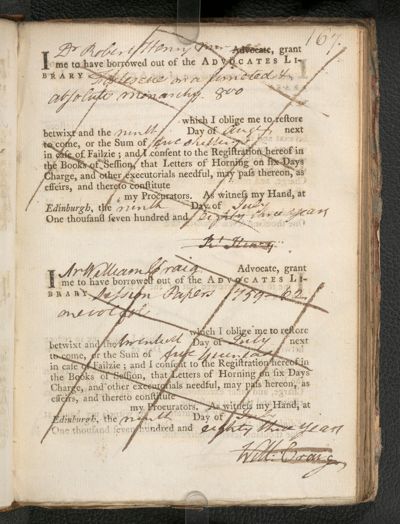 167
I Dr Robert Henry Advocate, grant
me to have borrowed out of the ADVOCATES LI-
BRARY Fortescue on a limited &
absolute monarchy. 8vo
which I oblige me to restore
betwixt and the ninth Day of Augt next
to come, or the Sum of five shillings
in case of Failzie; and I consent to the Registration hereof in
the Books of Session, that Letters of Horning on six Days
Charge, and other executorials needful, may pass thereon, as
effeirs, and thereto constitute
my Procurators. As witness my Hand, at
Edinburgh, the ninth Day of July
One thousand seven hundred and eighty three years
Rt Henry
I Mr William Craig Advocate, grant
me to have borrowed out of the ADVOCATES LI-
BRARY Session Papers 1759-62
one vol.
which I oblige me to restore
betwixt and the Day of July next
to come, or the Sum of five pounds
in case of Failzie; and I consent to the Registration hereof in
the Books of Session, that Letters of Horning on six Days
Charge, and other executorials needful, may pass thereon, as
effeirs, and thereto constitute
my Procurators. As witness my Hand, at
Edinburgh, the ninth Day of
One thousand seven hundred and eighty three years
Will: Craig